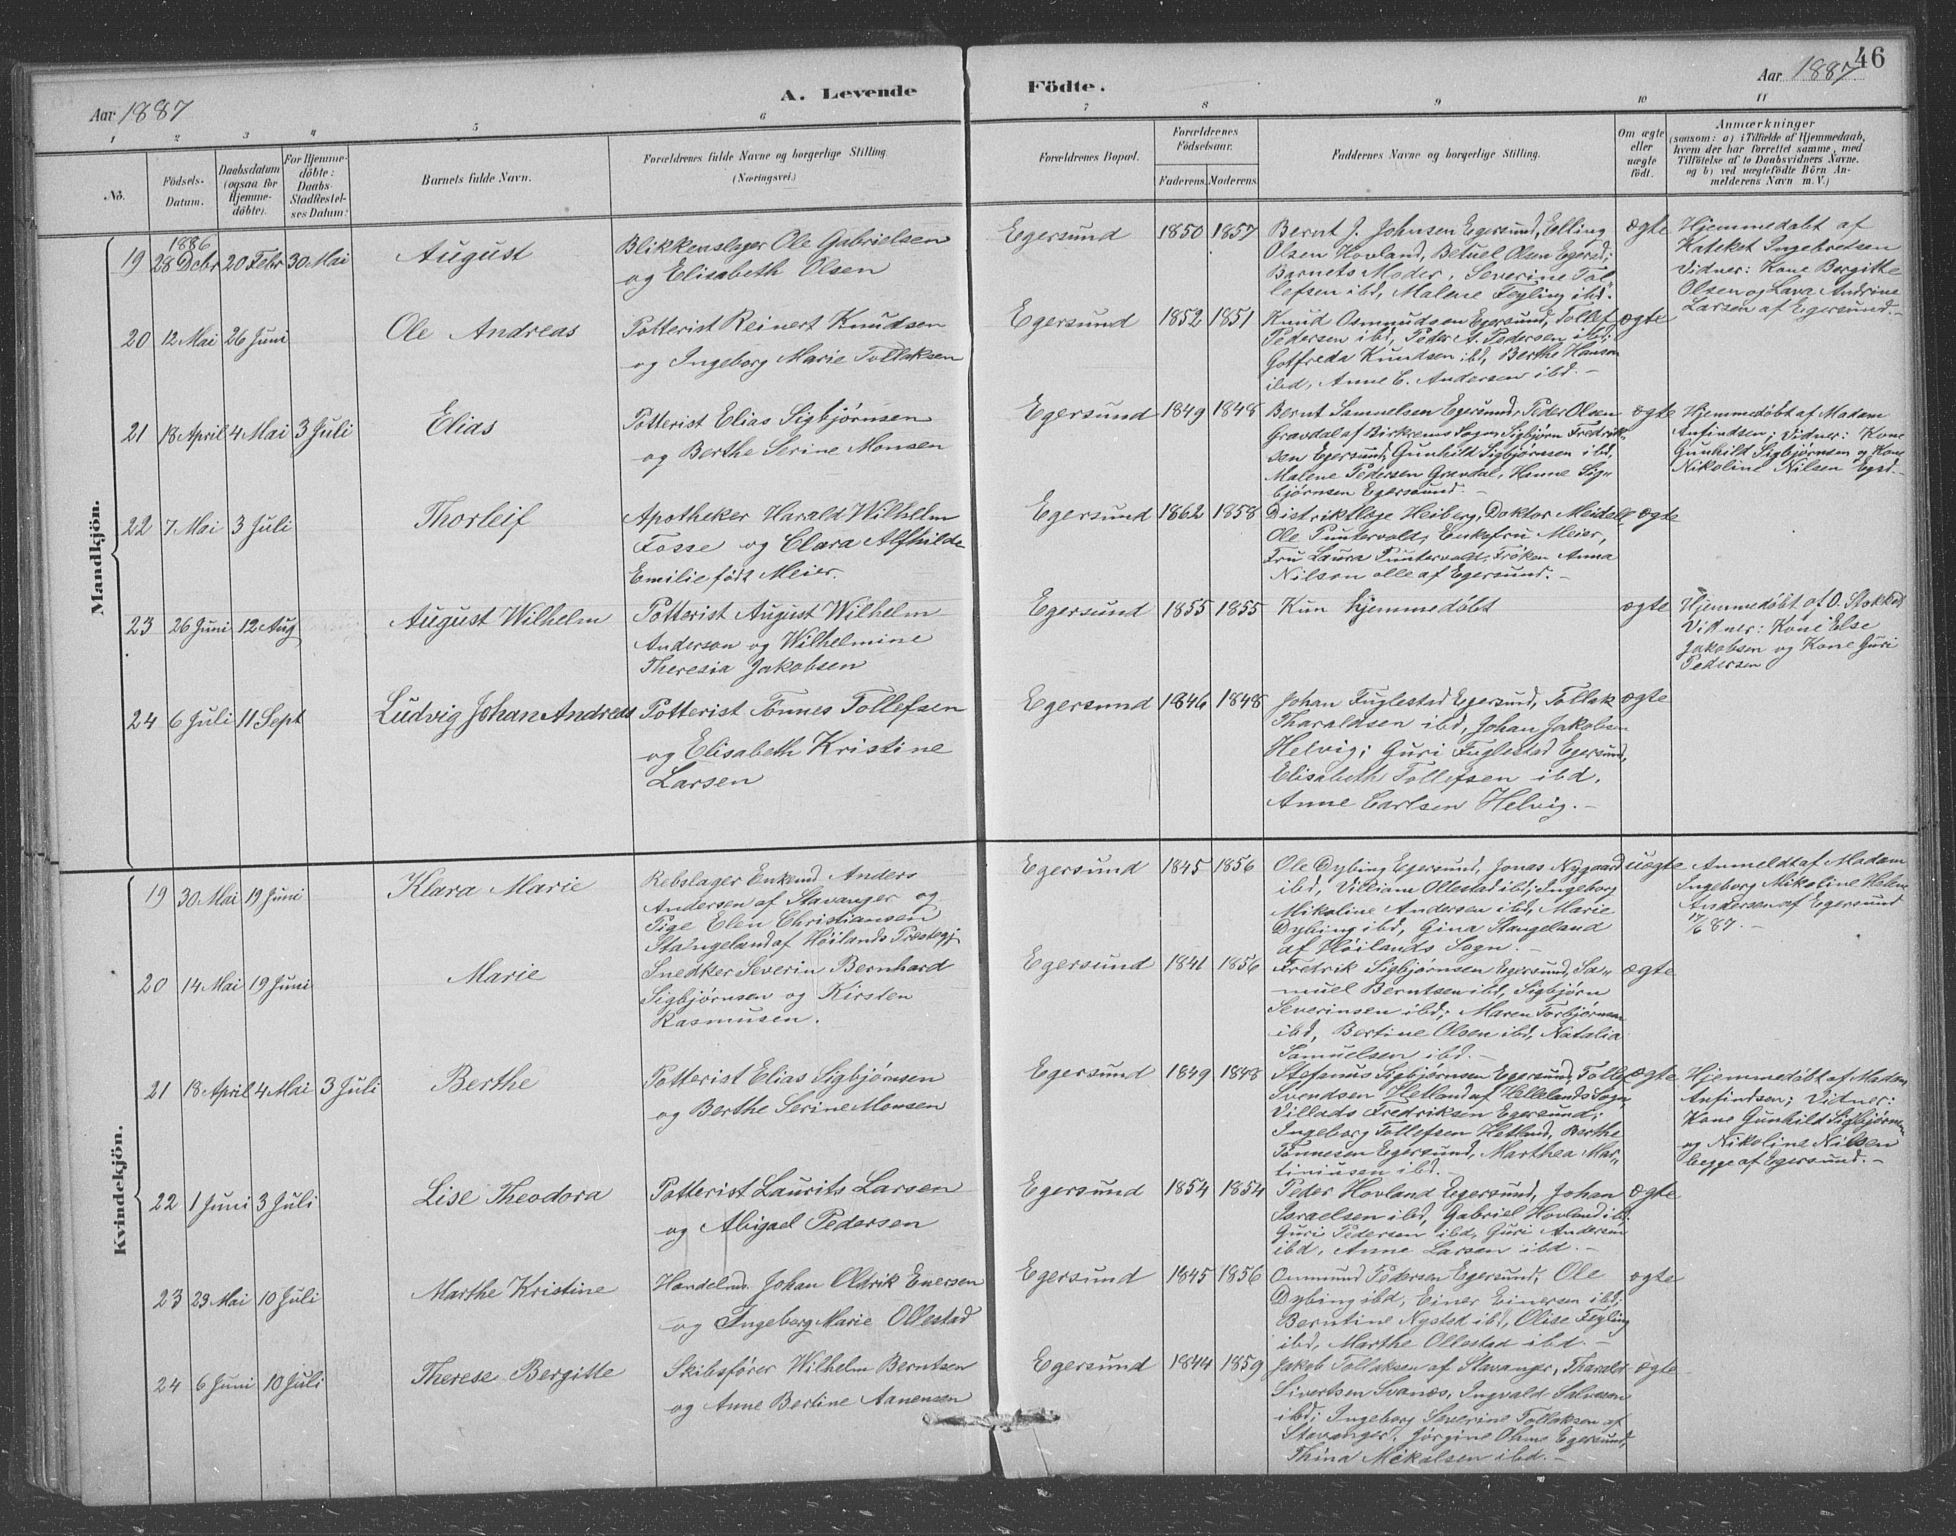 46
Aar 1887
A. Levende
Födte.
Aar 1887
1 2 3 4 5 6 7 8 9 10 11
No.
Födsels-
Datum.
Daabsdatum
(ogsaa for
Hjemme-
döbte).
For Hjemme-
döbte:
Daabs-
Stadfæstel-
ses Datum:
Barnets fulde Navn.
Forældrenes fulde Navne og borgerlige Stilling.
(Næringsvei.)
Forældrenes Bopæl.
Forældrenes
Födselsaar.
Faderens. Moderens.
Faddernes Navne og borgerlige Stilling.
Om ægte
eller
uægte
födt.
Anmærkninger
(saasom: a) i Tilfælde af Hjemmedaab,
hvem der har forrettet samme, med
Tilföielse af to Daabsvidners Navne.
og b) ved uægtefödte Börn An-
melderens Navn m. V.)
Mandkjön.
19 1886 28 Decbr 20 Febr 30 Mai
August
Blikkenslager Ole Gabrielsen
og Elisabeth Olsen
Egersund 1850 1857
Bernt J. Johnsen Egersund, Elling
Olsen Hovland, Betuel Olsen Egersd;
Barnets Moder, Severine Tol-
lefsen ibd, Malene Feyling ibd.
ægte
Hjemmedøbt af
Kateket Ingebretsen
Vidner: Kone Bergitte
Olsen og Lava Andrine
Larsen af Egersund.
20 12 Mai 26 Juni
Ole Andreas
Potterist Reinert Knudsen
og Ingeborg Marie Tollaksen
Egersund 1852 1851
Knud Osmundsen Egersund, Tollef
Pedersen ibd, Peder A. Pedersen ibd;
Gotfreda Knudsen ibd, Berthe Hansen
ibd, Anne C. Andersen ibd.
ægte
21 18 April 4 Mai 3 Juli
Elias
Potterist Elias Sigbjørnsen
og Berthe Serine Monsen
Egersund 1849 1848
Bernt Samuelsen Egersund, Peder Olsen
Gravdal af Birkrems Sogn, Sigbjørn Fredrik-
sen Egersund; Gunhild Sigbjørnsen ibd,
Malene Pedersen Gravdal, Hanne Sig-
bjørnsen Egersund.
ægte
Hjemmedøbt af Madam
Anfindsen; Vidner: Kone
Gunhild Sigbjørnsen og Kone
Nikoline Nilsen Egsd.
22 7 Mai 3 Juli
Thorleif
Apotheker Harald Wilhelm
Fosse og Clara Alfhilde
Emilie født Meier.
Egersund 1862 1858
Distriktslæge Heiberg, Doktor Meidell
Ole Puntervold, Enkefru Meier,
Fru Laura Puntervold, Frøken Anna
Nilsen alle af Egersund.
ægte
23 26 Juni 12 Aug
August Wilhelm
Potterist August Wilhelm
Anderson og Wilhelmine
Theresia Jakobsen
Egersund 1855 1855
Kun hjemmedøbt
ægte
Hjemmedøbt af O. Stokke
Vidner: Kone Else
Jakobsen og Kone Guri
Pedersen
24 6 Juli 11 Sept
Ludvig Johan Andreas
Potterist Tønnes Tollefsen
og Elisabeth Kristine
Larsen
Egersund 1846 1848
Johan Fuglestad Egersund, Tollak
Tharaldsen ibd, Johan Jakobsen
Helvig; Guri Fuglestad Egersund,
Elisabeth Tollefsen ibd,
Anne Carlsen Helvig.
ægte
Kvindekjön.
19 30 Mai 19 Juni
Klara Marie
Rebslager Enkemd Anders
Andersen af Stavanger og
Pige Elen Christiansen
Stangeland af Höilands Præstegj
Egersund 1845 1856
Ole Dybing Egersund, Jonas Nygaard
ibd, Villiam Ollestad ibd; Ingeborg
Mikoline Andersen ibd, Marie
Dybing ibd, Gina Stangeland
af Höilands Sogn.
uægte
Anmeldt af Madam
Ingeborg Mikoline Helene
Andersen af Egersund
17/6 87.
20 14 Mai 19 Juni
Marie
Snedker Severin Bernhard
Sigbjørnsen og Kirsten
Rasmusen.
Egersund 1841 1856
Fredrik Sigbjørnsen Egersund, Sa-
muel Berntsen ibd, Sigbjørn
Severinsen ibd; Maren Torbjørnsen
ibd, Bertine Olsen ibd, Natalia
Samuelsen ibd.
ægte
21 18 April 4 Mai 3 Juli
Berthe
Potterist Elias Sigbjørnsen
og Berthe Serine Monsen
Egersund 1849 1848
Stefanus Sigbjørnsen Egersund, Tollef
Svendsen Hetland af Hellelands Sogn,
Villads Fredriksen Egersund;
Ingeborg Tollefsen Hetland, Berthe
Tønnesen Egersund, Marthea Mar-
tiniusen ibd.
ægte
Hjemmedøbt af Madam
Anfindsen; Vidner:
Kone Gunhild Sigbjørnsen
og Nikoline Nilsen
begge af Egersund.
22 1 Juni 3 Juli
Lise Theodora
Potterist Laurits Larsen
og Abigael Pedersen
Egersund 1854 1854
Peder Hovland Egersund, Johan
Israelsen ibd, Gabriel Hovland ibd.
Guri Pedersen ibd, Guri Andersen
ibd, Anne Larsen ibd.
ægte
23 23 Mai 10 Juli
Marthe Kristine
Handelsm. Johan Oldrik Enersen
og Ingeborg Marie Ollestad
Egersund 1845 1856
Ommund Pedersen Egersund, Ole
Dybing ibd, Einer Einersen ibd;
Berntine Nysted ibd, Olise Feyling
ibd, Marthe Ollestad ibd.
ægte
24 6 Juni 10 Juli
Therese Bergitte
Skibsfører Wilhelm Berntsen
og Anne Bertine Aanensen
Egersund 1844 1859
Jakob Tollaksen af Stavanger, Tharald
Sivertsen Svanes, Ingvald Salvesen
ibd; Ingeborg Severine Tollaksen af
Stavanger, Jørgine Ohme Egersund,
Thina Mikalsen ibd.
ægte